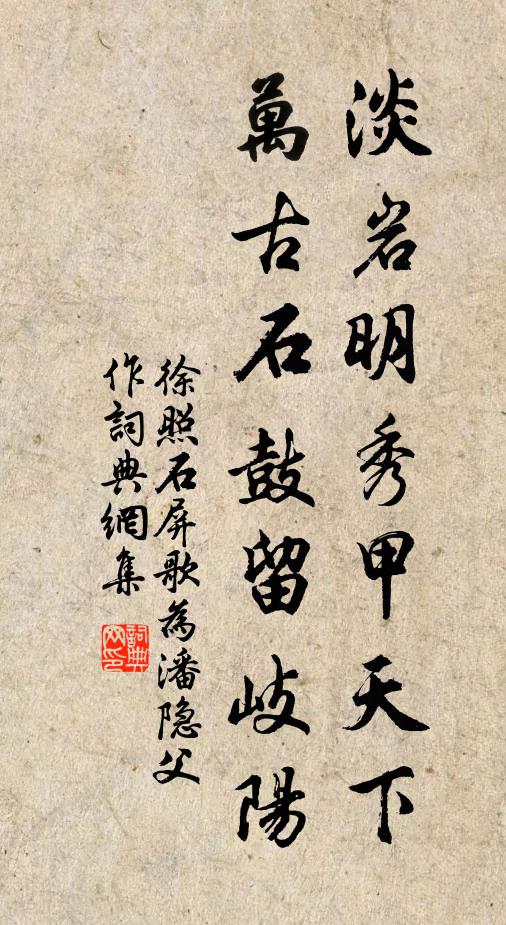 淡岩明秀甲天下
萬古石鼓留岐陽
徐照石屏歌為潘隐父
作詞典網集
詞典
网印